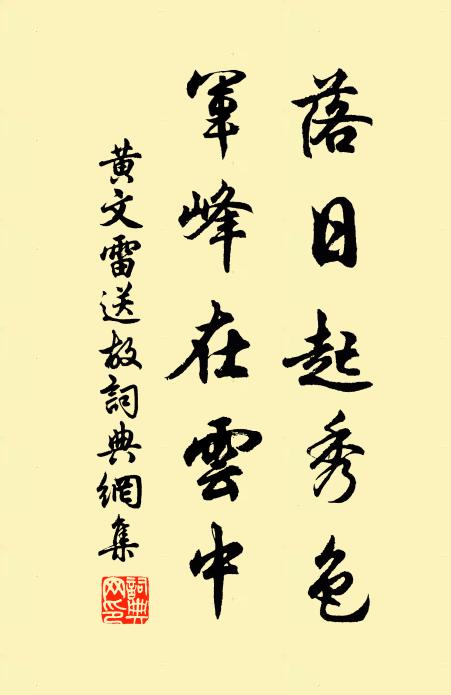 落日起秀色
軍峰在雲中
黃文雷送故詞典網集
詞典網印